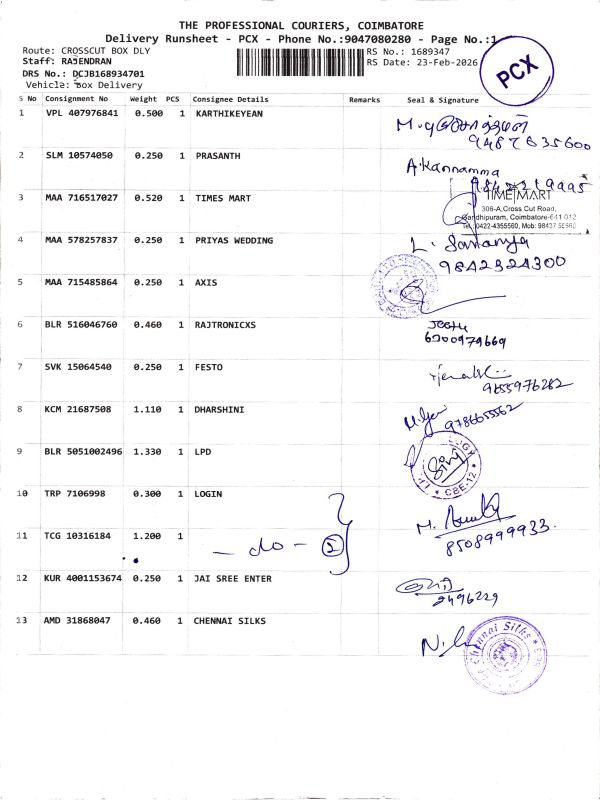 THE PROFESSIONAL COURIERS, COIMBATORE
Delivery Runsheet - PCX - Phone No.:9047080280 - Page No.:1
Route: CROSSCUT BOX DLY
RS No.: 1689347
Staff: RAJENDRAN
RS Date: 23-Feb-2026
DRS No.: DCJB168934701
Vehicle: Box Delivery
PCX
S No Consignment No Weight PCS Consignee Details Remarks Seal & Signature
1 VPL 407976841 0.500 1 KARTHIKEYEAN
2 SLM 10574050 0.250 1 PRASANTH A.Kannamma
3 MAA 716517027 0.520 1 TIMES MART
TIME MART
306-A,Cross Cut Road,
Gandhipuram, Coimbatore-641 012
Tel.:0422-4355560, Mob:
4 MAA 578257837 0.250 1 PRIYAS WEDDING L. Saranya
9842324300
5 MAA 715485864 0.250 1 AXIS
6 BLR 516046760 0.460 1 RAJTRONICXS
6300979669
7 SVK 15064540 0.250 1 FESTO
9655976282
8 KCM 21687508 1.110 1 DHARSHINI 9786655562
9 BLR 5051002496 1.330 1 LPD
CBE-12
10 TRP 7106998 0.300 1 LOGIN
11 TCG 10316184 1.200 1 - do - 2
8508999933.
12 KUR 4001153674 0.250 1 JAI SREE ENTER
13 AMD 31868047 0.460 1 CHENNAI SILKS
Chennai Silks